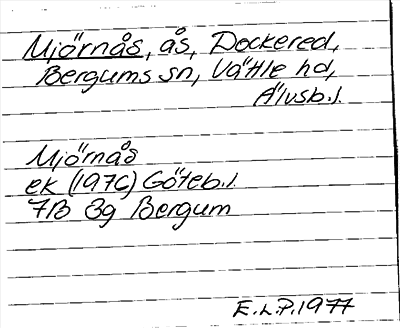 Mjörnås, ås, Dockered,
Bergums sn, Vättle hd,
Älvsb. l.
Mjörnås
ek (1976) Göteb. l.
7B 8g Bergum
E.L.P. 1977